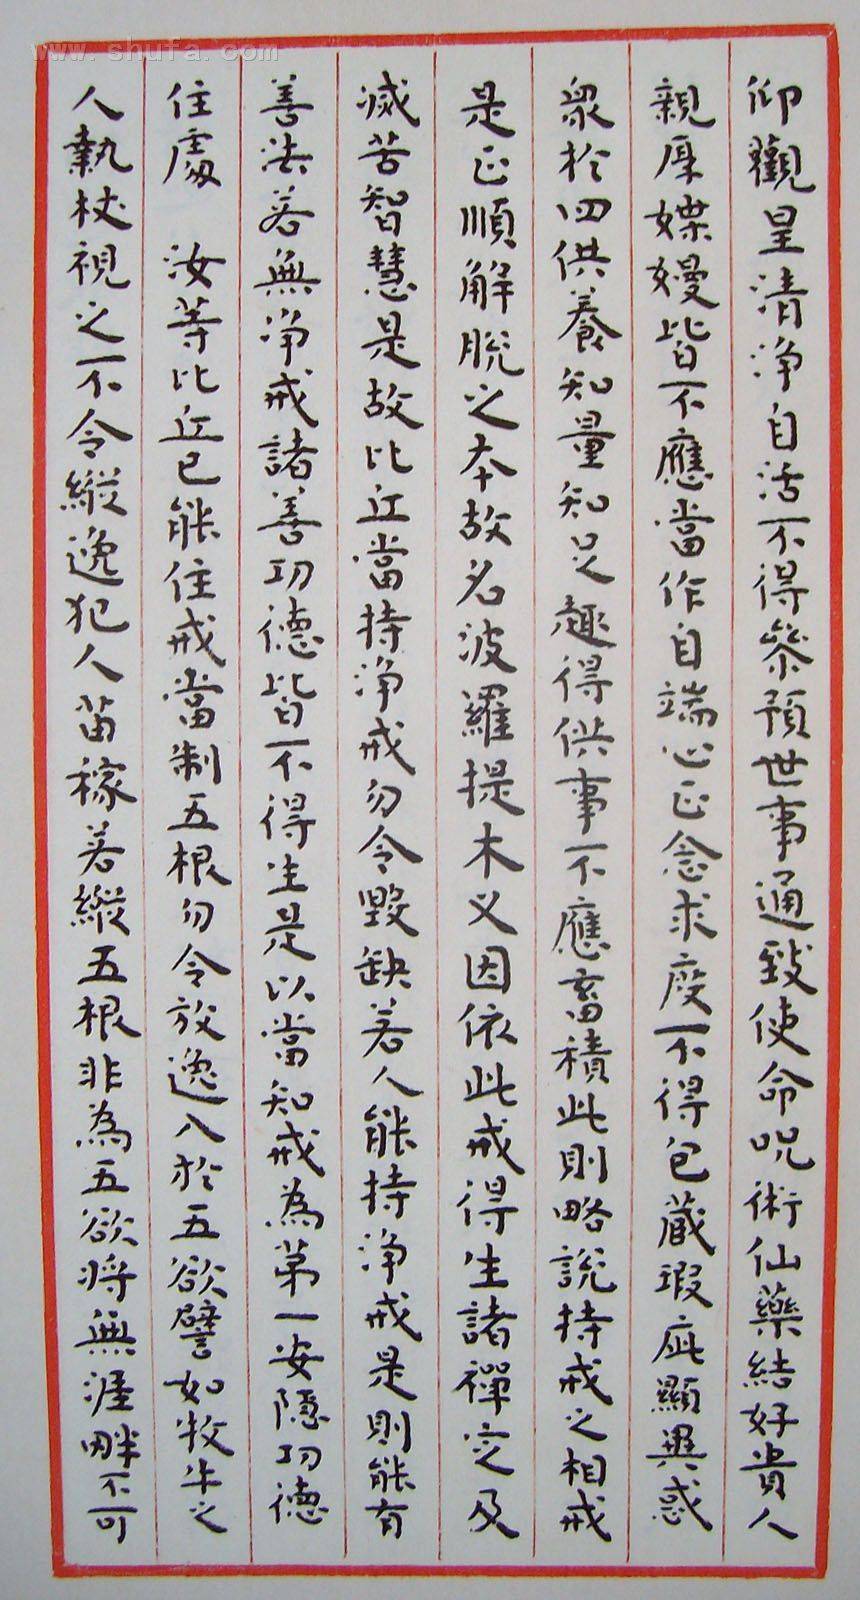 www.shufa.com
仰觀星清淨自活不得參預世事通致使命呪術仙藥結好貴人
親厚媟嫚皆不應當作自端心正念求度不得包藏瑕疵顯異惑
衆於四供養知量知足趣得供事不應畜積此則略說持戒之相戒
是正順解脫之本故名波羅提木义因依此戒得生諸禪定及
滅苦智慧是故比丘當持淨戒勿令毀缺若人能持淨戒是則能有
善法若無淨戒諸善功德皆不得生是以當知戒為第一安隱功德
住處 汝等比丘已能住戒當制五根勿令放逸入於五欲譬如牧牛之
人執杖視之不令縱逸犯人苗稼若縱五根非為五欲將無涯畔不可